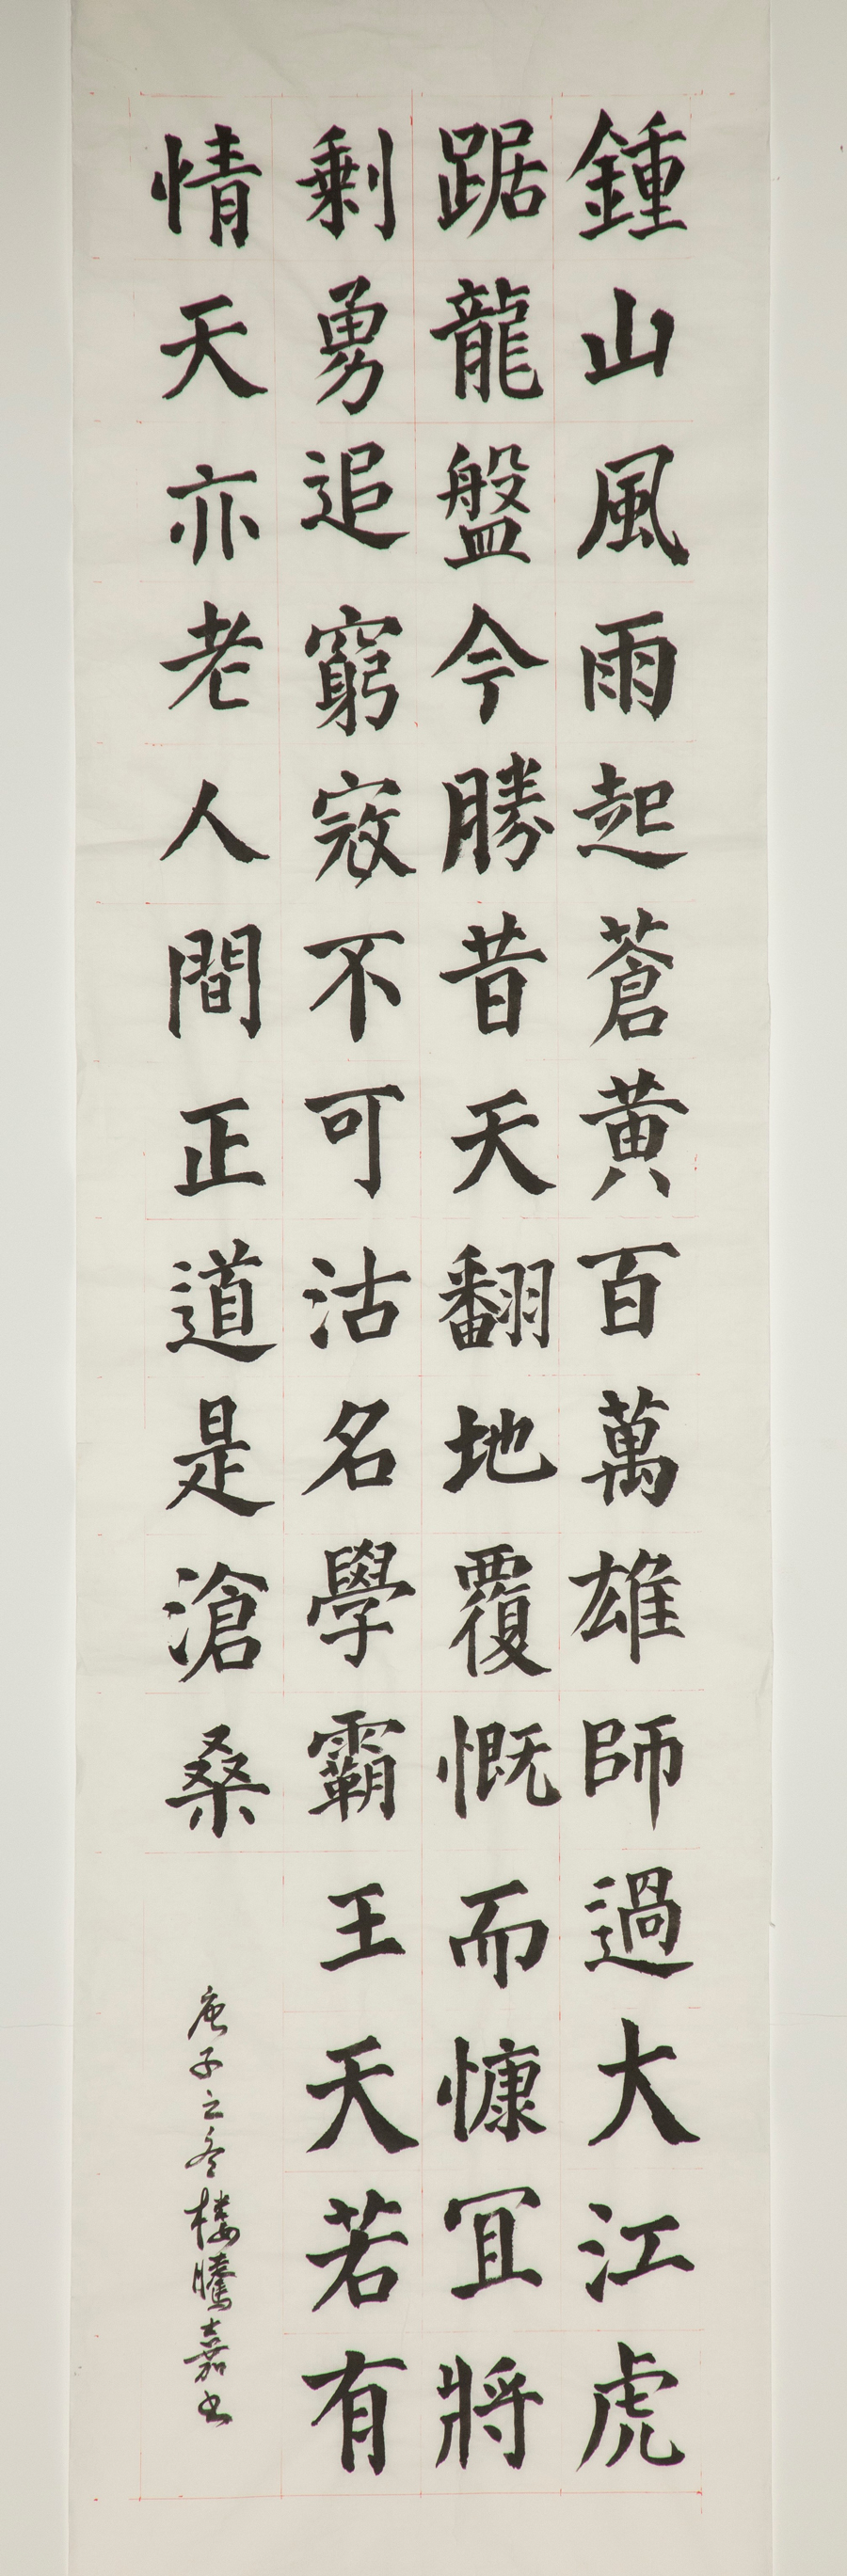 鍾山風雨起蒼黄百萬雄師過大江虎
踞龍盤今勝昔天翻地覆慨而慷宜將
剩勇追窮寇不可沽名學霸王天若有
情天亦老人間正道是滄桑
庚子之冬楼騰嘉书